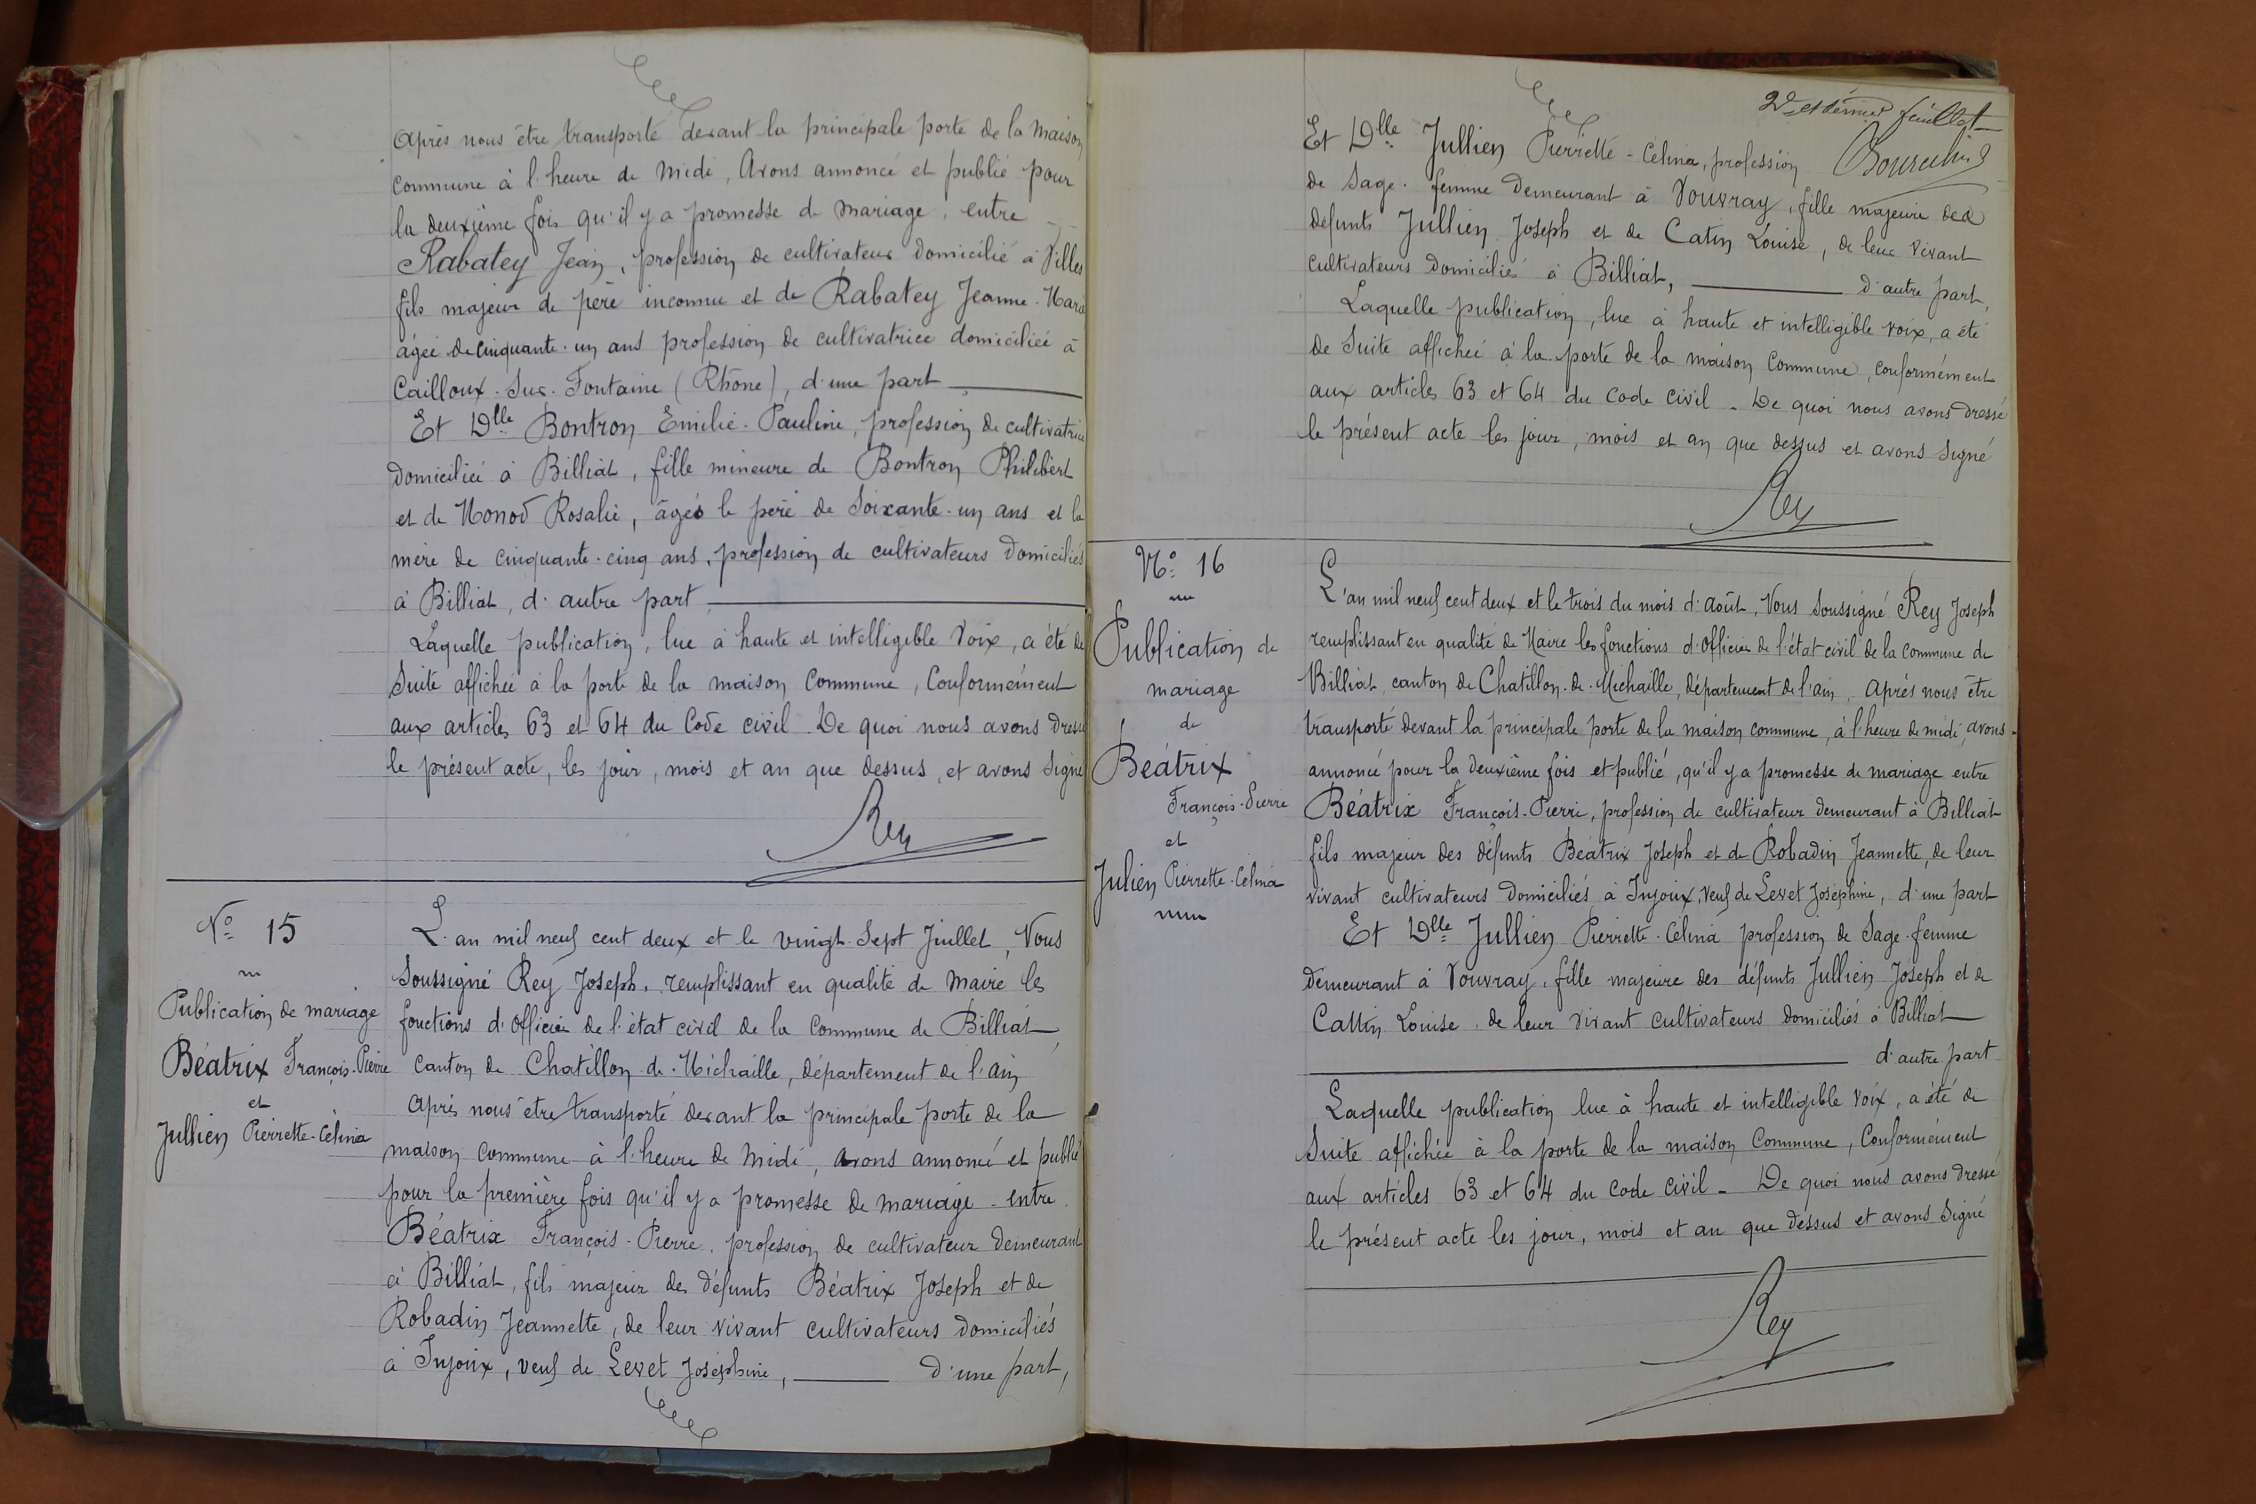 Après nous être transporté devant la principale porte de la maison
commune à l'heure de midi, Avons annoncé et publié pour
la deuxième fois qu'il y a promesse de mariage, entre
Rabatey Jean, profession de cultivateur domicilié à Villes
fils majeur de père inconnu et de Rabatey Jeanne-Marie
âgée de cinquante-un ans profession de cultivatrice domiciliée à
Cailloux-Sur-Fontaine (Rhône), d'une part
Et Dlle Bontron Emilie-Pauline, profession de cultivatrice
domiciliée à Billiat, fille mineure de Bontron Philibert
et de Monod Rosalie, âgés le père de Soixante-un ans et la
mère de cinquante-cinq ans, profession de cultivateurs domiciliés
à Billiat, d'autre part
Laquelle publication, lue à haute et intelligible voix, a été de
Suite affichée à la porte de la maison commune, Conformément
aux articles 63 et 64 du Code civil. De quoi nous avons dressé
le présent acte, les jour, mois et an que dessus, et avons signé
Rey
No 15
Publication de mariage
Béatrix François-Pierre
et
Jullien Pierrette-Célina
L'an mil neuf cent deux et le vingt-Sept Juillet, Nous
Soussigné Rey Joseph, remplissant en qualité de Maire les
fonctions d'officier de l'état civil de la Commune de Billiat,
canton de Chatillon-de-Michaille, département de l'ain
après nous être transporté devant la principale porte de la
maison commune à l'heure de midi, avons annoncé et publié
pour la première fois qu'il y a promesse de mariage - entre
Béatrix François-Pierre, profession de cultivateur demeurant
à Billiat, fils majeur des défunts Béatrix Joseph et de
Robadin Jeannette, de leur vivant cultivateurs domiciliés
à Injoux, veuf de Levet Joséphine, d'une part,
2e et dernier feuillet
Et Dlle Jullien Pierrette-Célina, profession
de Sage-femme demeurant à Vouvray, fille majeure des
défunts Jullien Joseph et de Catin Louise, de leur vivant
cultivateurs domiciliés à Billiat, d'autre part,
Laquelle publication, lue à haute et intelligible voix, a été
de Suite affichée à la porte de la maison commune, conformément
aux articles 63 et 64 du Code civil - De quoi nous avons dressé
le présent acte les jour, mois et an que dessus et avons signé
Rey
No 16
Publication de
mariage
de
Béatrix
François-Pierre
et
Julien Pierrette-Célina
L'an mil neuf cent deux et le trois du mois d'août, Nous Soussigné Rey Joseph
remplissant en qualité de Maire les fonctions d'officier de l'état civil de la commune de
Billiat, canton de Chatillon-de-Michaille, département de l'ain, après nous être
transporté devant la principale porte de la maison commune, à l'heure de midi, avons
annoncé pour la deuxième fois et publié, qu'il y a promesse de mariage entre
Béatrix François-Pierre, profession de cultivateur demeurant à Billiat
fils majeur des défunts Béatrix Joseph et de Robadin Jeannette, de leur
vivant cultivateurs domiciliés à Injoux, veuf de Levet Joséphine, d'une part
Et Dlle Jullien Pierrette-Célina profession de Sage-femme
demeurant à Vouvray, fille majeure des défunts Jullien Joseph et de
Cattin Louise, de leur vivant cultivateurs domiciliés à Billiat
d'autre part
Laquelle publication lue à haute et intelligible voix, a été de
Suite affichée à la porte de la maison commune, Conformément
aux articles 63 et 64 du code civil - De quoi nous avons dressé
le présent acte les jour, mois et an que dessus et avons signé
Rey